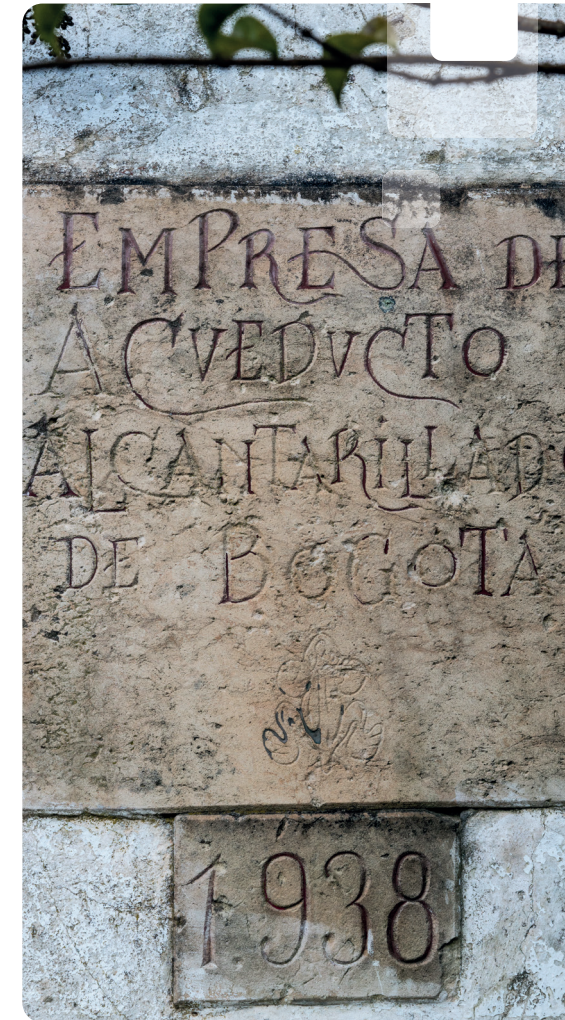 EMPRESA DE
ACVEDVCTO
ALCANTARILLADO
DE BOGOTA
1938